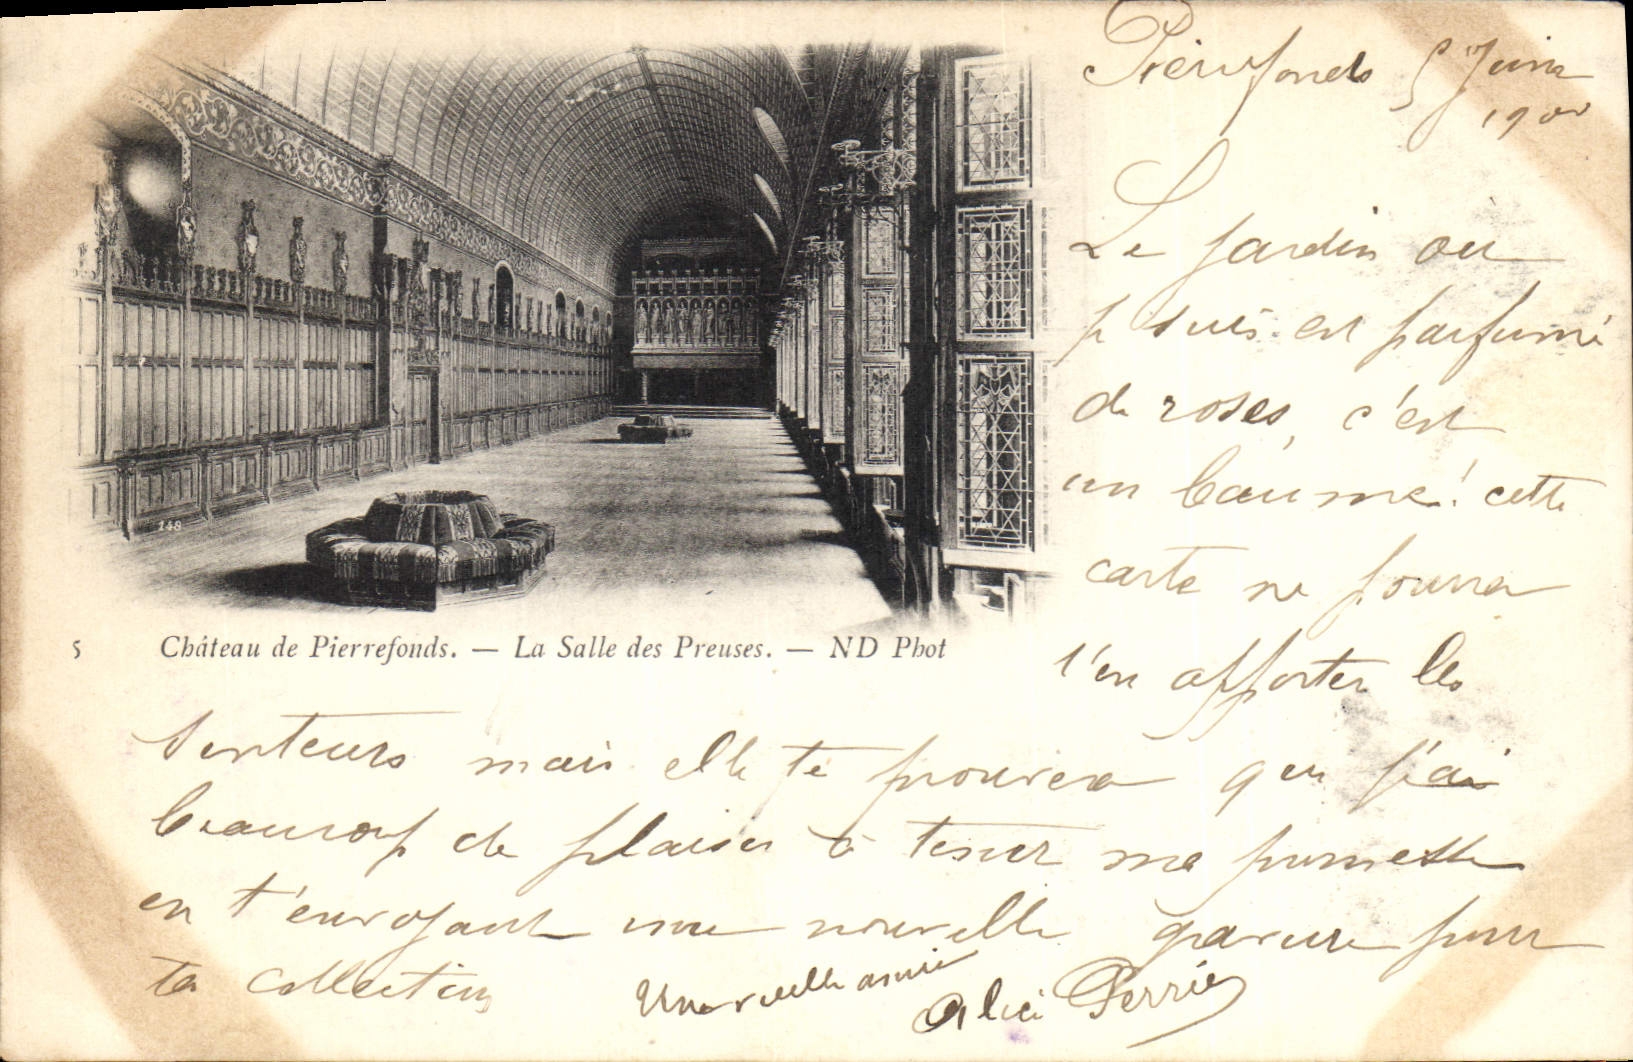 Pierrefonds 5 Juin
1900
Le jardin où
je suis est parfumé
de roses, c'est
un baume! cette
carte ne pourra
t'en apporter les
senteurs mais elle te prouvera que j'ai
beaucoup de plaisir à tenir ma promesse
en t'envoyant une nouvelle gravure pour
ta collection
Une vieille amie
Alice Perrier
148
5 Château de Pierrefonds. — La Salle des Preuses. — ND Phot